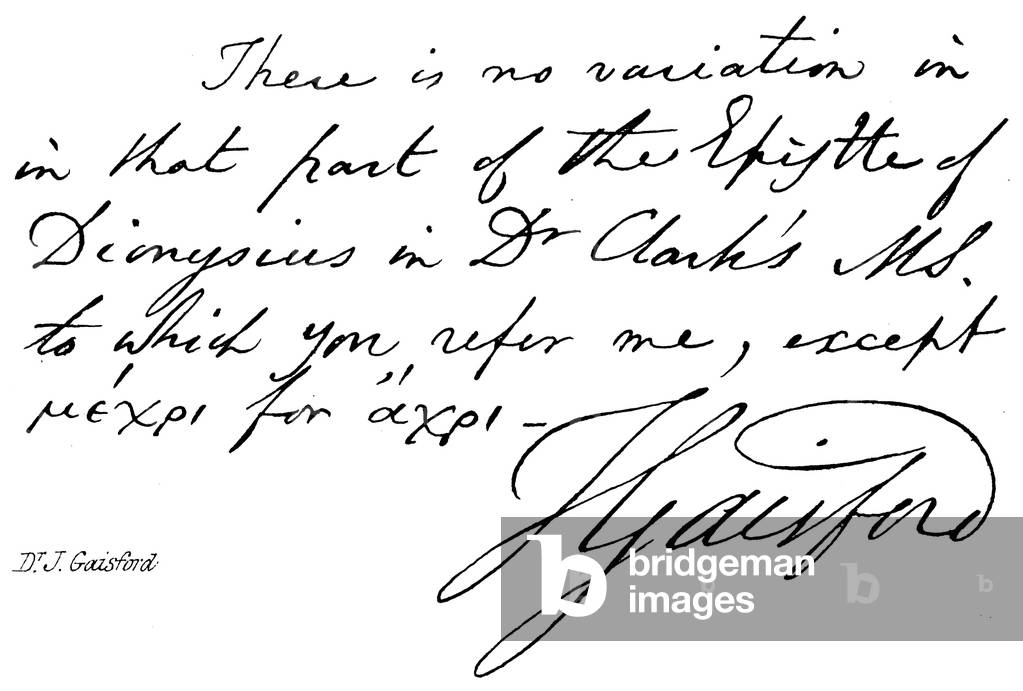 There is no variation in
in that part of the Epistle of
Dionysius in Dr Clark's MS.
to which you refer me, except
μέχρι for ἄχρι –
TGaisford
Dr. J. Gaisford.
bridgeman
images